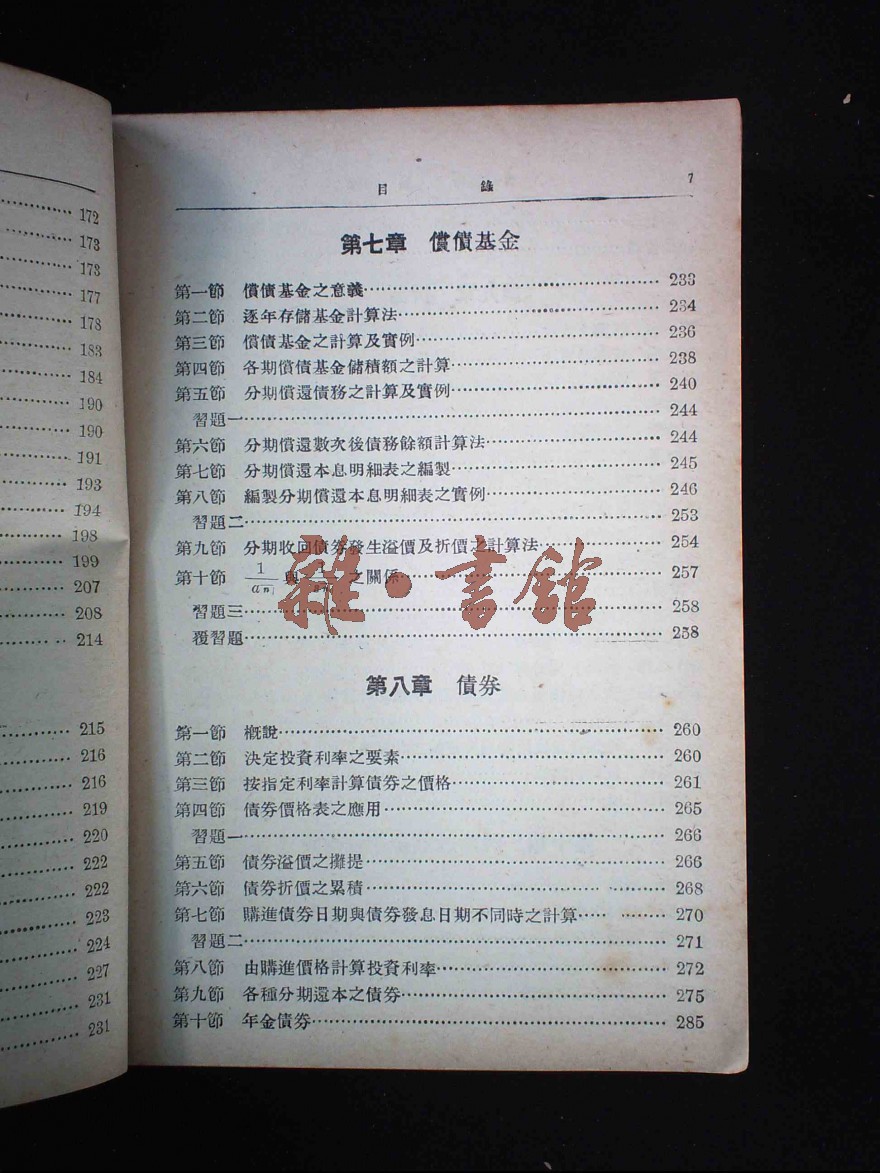 172
173
173
177
178
183
184
190
190
191
193
194
198
199
207
208
214
215
216
216
219
220
222
222
223
224
227
231
231
目 錄 7
第七章 償債基金
第一節 償債基金之意義 233
第二節 逐年存儲基金計算法 234
第三節 償債基金之計算及實例 236
第四節 各期償債基金儲積額之計算 238
第五節 分期償還債務之計算及實例 240
習題一 244
第六節 分期償還數次後債務餘額計算法 244
第七節 分期償還本息明細表之編製 245
第八節 編製分期償還本息明細表之實例 246
習題二 253
第九節 分期收回債券發生溢價及折價之計算法 254
第十節 1/an| 與 之關係 257
習題三 258
覆習題 258
第八章 債券
第一節 概說 260
第二節 決定投資利率之要素 260
第三節 按指定利率計算債券之價格 261
第四節 債券價格表之應用 265
習題一 266
第五節 債券溢價之攤提 266
第六節 債券折價之累積 268
第七節 購進債券日期與債券發息日期不同時之計算 270
習題二 271
第八節 由購進價格計算投資利率 272
第九節 各種分期還本之債券 275
第十節 年金債券 285
雜·書館